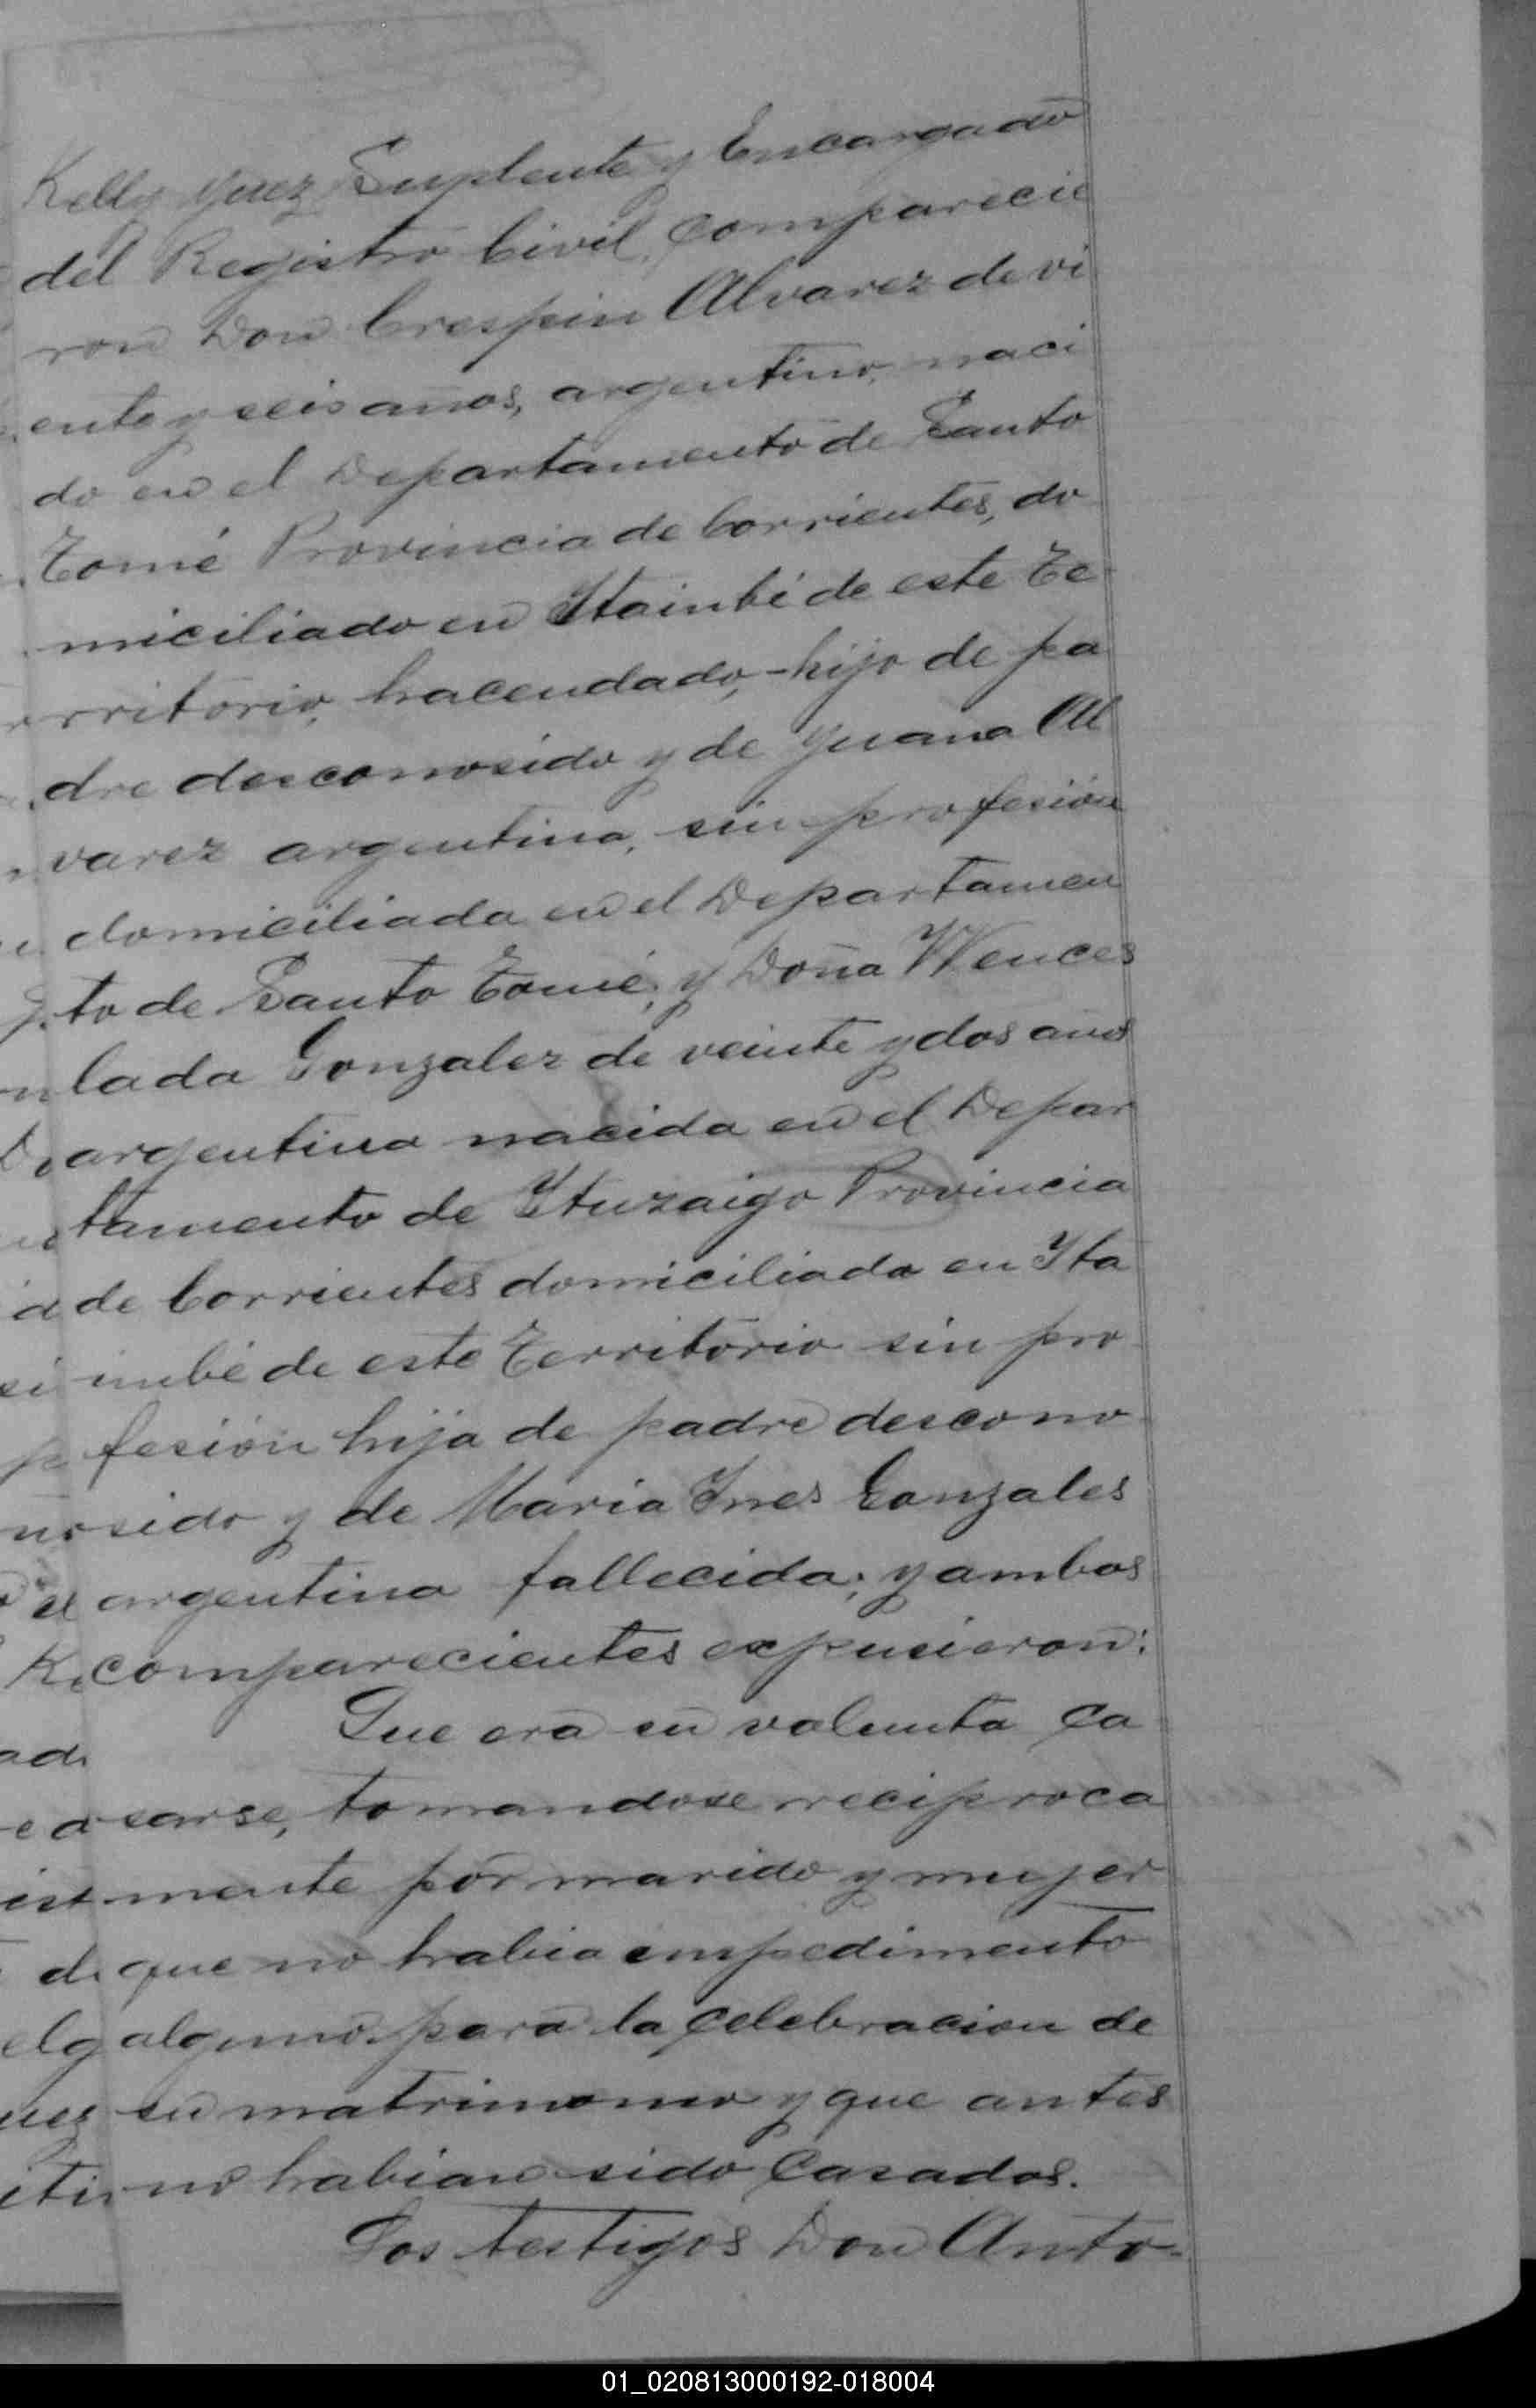 Kelly Juez Suplente y Encargado
del Registro Civil, comparecie
ron Don Crespin Alvarez de vi
ente y seis años, argentino, naci
do en el Departamento de Santo
Tomé Provincia de Corrientes, do
miciliado en Itaimbé de este Te
rritorio, hacendado, - hijo de pa
dre desconosido y de Juana Al
varez argentina, sin profesión
domiciliada en el Departamen
to de Santo Tomé; y Doña Wences
lada Gonzalez de veinte y dos años
argentina nacida en el Depar
tamento de Ituzaigo Provincia
de Corrientes domiciliada en Ita
imbé de este Territorio sin pro
fesión hija de padre descono
sido y de Maria Ines Gonzales
argentina fallecida; y ambos
comparecientes expusieron:
Que era su volunta ca
sarse, tomandose reciproca
mente por marido y mujer
que no habia impedimento
alguno para la celebracion de
su matrimonio y que antes
no habian sido casados.
Los testigos Don Anto-
01_020813000192-018004